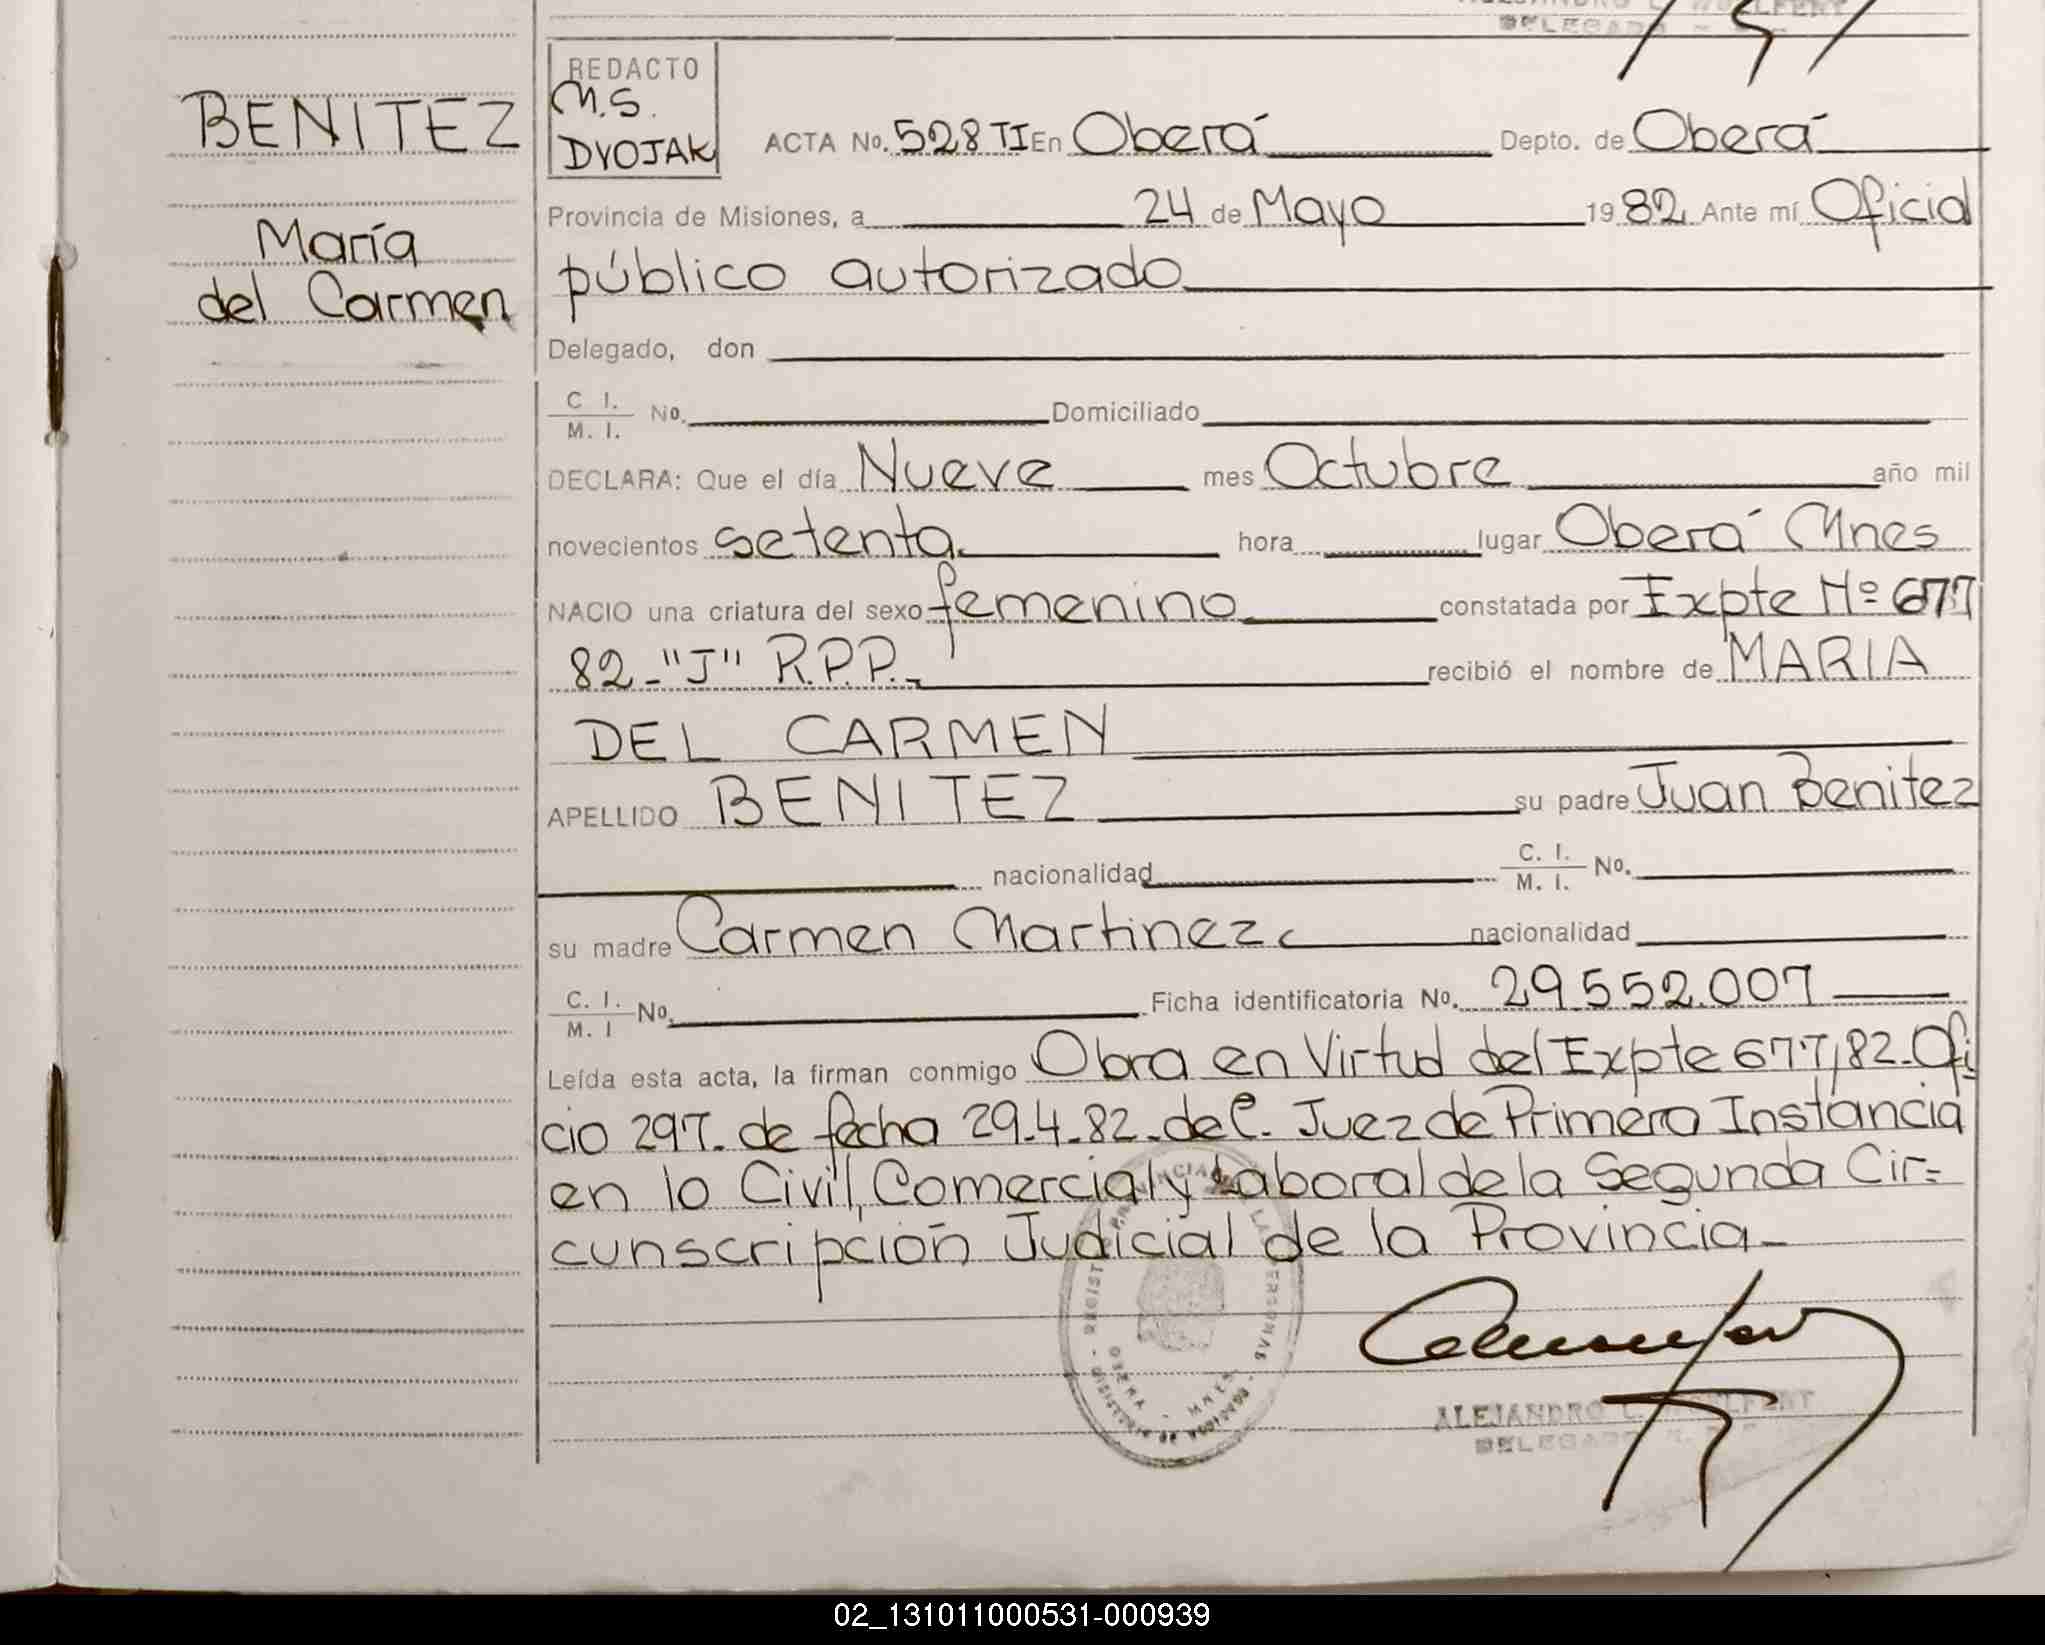 BENITEZ
María
del Carmen
DELEGADO
REDACTO
M.S.
DVOJAK
ACTA No. 528 TI En Oberá Depto. de Oberá
Provincia de Misiones, a 24 de Mayo 1982 Ante mí Oficial
público autorizado
Delegado, don
C I.
M. I. No. Domiciliado
DECLARA: Que el día Nueve mes Octubre año mil
novecientos setenta hora lugar Oberá Mnes
NACIO una criatura del sexo femenino constatada por Expte Nº 677
82-"J" R.P.P.- recibió el nombre de MARIA
DEL CARMEN
APELLIDO BENITEZ su padre Juan Benitez
nacionalidad C. I.
M. I. No.
su madre Carmen Martinez nacionalidad
C. I.
M. I No. Ficha identificatoria No. 29.552.007
Leída esta acta, la firman conmigo Obra en Virtud del Expte 677/82-Ofi
cio 297. de fecha 29-4-82. del. Juez de Primera Instancia
en lo Civil, Comercial y Laboral de la Segunda Cir=
cunscripción Judicial de la Provincia-
OBERA - MNES
ALEJANDRO
DELEGADO
02_131011000531-000939